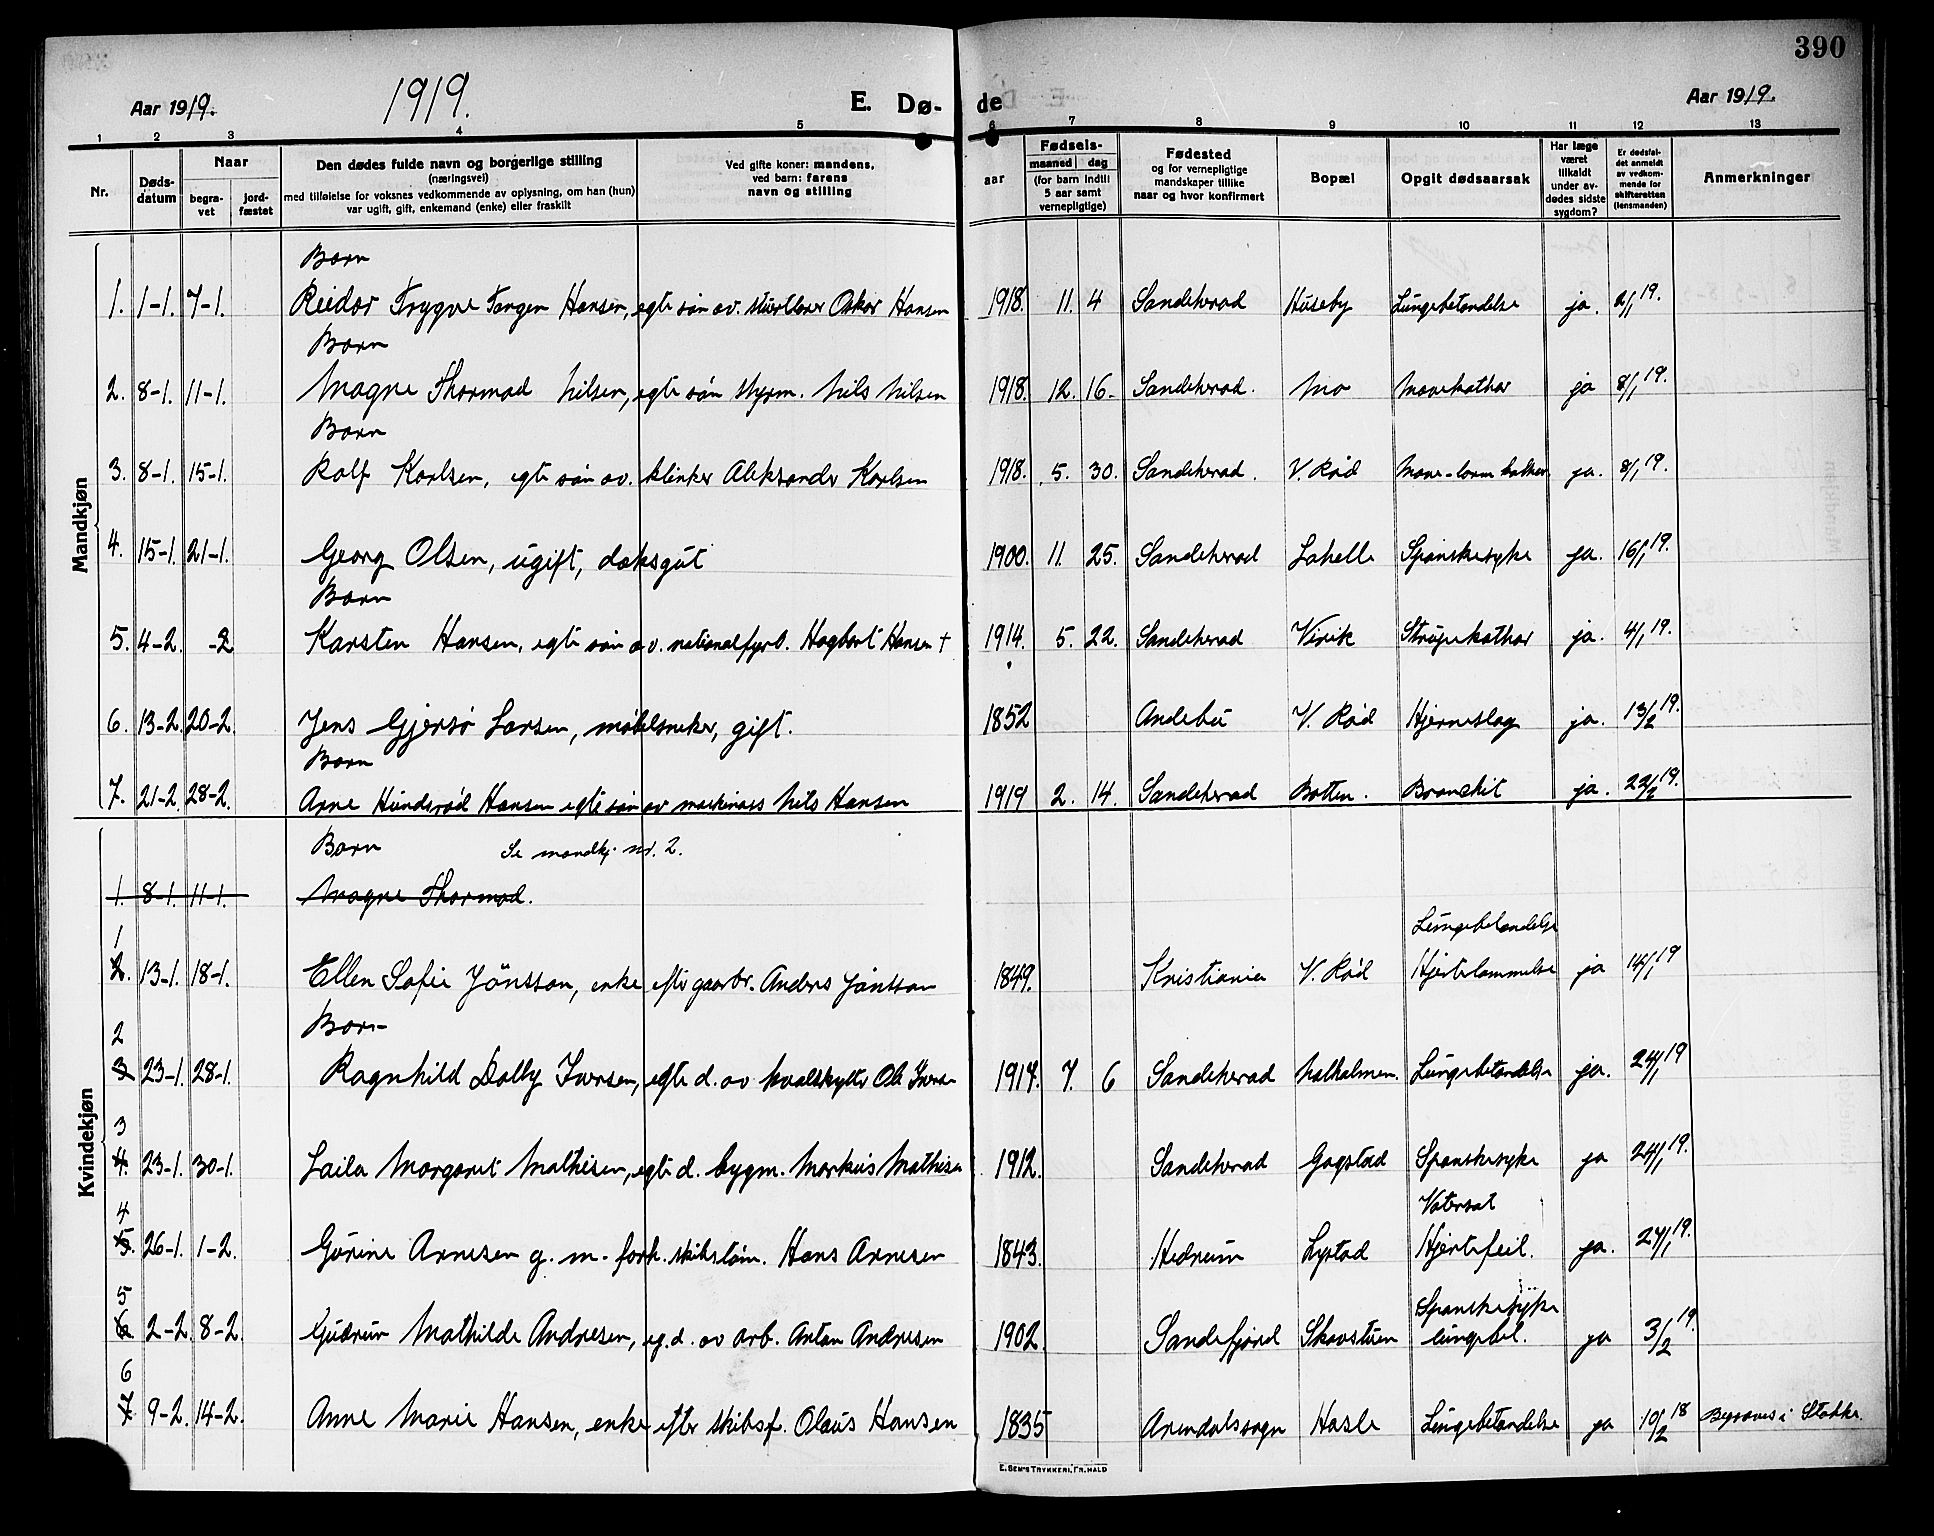 390
Aar 1919. 1919. E. Dø- de Aar 1919.
1 2 3 4 5 6 7 8 9 10 11 12 13
Nr.
Døds-
datum
Naar
begra-
vet
jord-
fæstet
Den dødes fulde navn og borgerlige stilling
(næringsvei)
med tilføielse for voksnes vedkommende av oplysning, om han (hun)
var ugift, gift, enkemand (enke) eller fraskilt
Ved gifte koner: mandens,
ved barn: farens
navn og stilling
aar
Fødsels-
maaned dag
(for barn indtil
5 aar samt
vernepligtige)
Fødested
og for vernepligtige
mandskaper tillike
naar og hvor konfirmert
Bopæl
Opgit dødsaarsak
Har læge
været
tilkaldt
under av-
dødes sidste
sygdom?
Er dødsfal-
det anmeldt
av vedkom-
mende for
skifteretten
(lensmanden)
Anmerkninger
Mandkjøn
Barn
1. 1-1. 7-1. Reidar Trygve Tangen Hansen, egte søn av. Oskar Hansen 1918. 11. 4 Sandeherad Huseby Lungebetændelse ja. 2/1 19.
Barn
2. 8-1. 11-1. Magne Thormod Nilsen, egte søn styrm. Nils Nilsen 1918. 12. 16. Sandeherad. Mo Mavekathar ja 8/1 19.
Barn
3. 8-1. 15-1. Rolf Karlsen, egte søn av. klinker Aleksander Karlsen 1918. 5. 30. Sandeherad. V. Rød Mave-tarm ja. 8/1 19.
4. 15-1. 21-1. Georg Olsen, ugift, daksgut 1900. 11. 25. Sandeherad Lahelle Spanskesyke ja. 16/1 19.
Barn
5. 4-2. -2 Karsten Hansen, egte søn av. Hagbart Hansen + 1914. 5. 22. Sandeherad Virik Strupekathar ja. 4/1 19.
6. 13-2. 20-2. Jens Gjersø Larsen, møbelsneker, gift. 1852 Andebu V. Rød Hjerneslag ja. 13/2 19.
Barn
7. 21-2. 28-2. Arne Hundsrød Hansen egte søn av maskinas Nils Hansen 1919 2. 14. Sandeherad Botten. Bronchit ja. 22/2 19.
Kvindekjøn
Barn Se mandkj. nr. 2.
1. 8-1. 11-1. Magne Thormod.
1 Lungebetændelse
2. 13-1. 18-1. Ellen Sofie Jönsson, enke efter gaarbr. Anders Jönsson 1849. Kristiania V. Rød Hjertelammelse ja 14/1 19
Barn
2
3 23-1. 28-1. Ragnhild Dolly Iversen, egte d. av hvalskytter Ole Iversen 1917. 7. 6 Sandeherad Lungebetændelse ja. 24/1 19
3
4. 23-1. 30-1. Laila Margaret Mathisen, egte d. bygm. Markus Mathisen 1912. Sandeherad Gogstad Spanskesyke ja 24/1 19.
4 Vatersot
5. 26-1. 1-2. Gurine Arnesen g. m. forh. skibstøm. Hans Arnesen 1843. Hedrum Lystad Hjertefeil. ja. 27/1 19.
5 Spanskesyke
6. 2-2. 8-2. Gudrun Mathilde Andresen, eg. d. av arb. Anton Andresen 1902 Sandefjord Skovstuen lungebet. ja 3/2 19.
6
7. 9-2. 14-2. Anne Marie Hansen, enke efter skibsf. Olaus Hansen 1835 Arendalssogn Hasle Lungebetændelse ja 10/2 18 Begraves i Stokke.
E. SEM'S TRYKKERI, FR.HALD